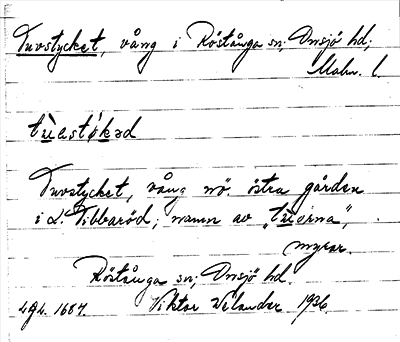 Tuvstycket, vång i Röstånga sn; Onsjö hd,
Malm. l.
tùestókəd
Tuvstycket, vång nö. östra gården
i L. Tibbaröd; namn av „tùerna”,
myror.
Röstånga sn; Onsjö hd.
494. 1687. Viktor Wélander 1936.